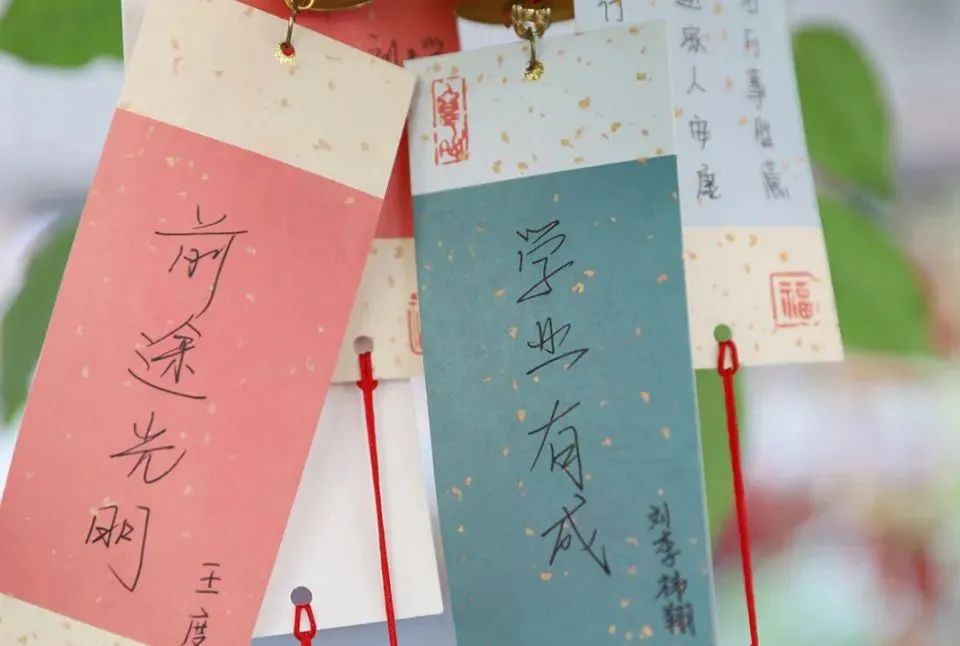 前途光明
王度
学业有成
刘李梯翔
家人安康
万事胜意
福